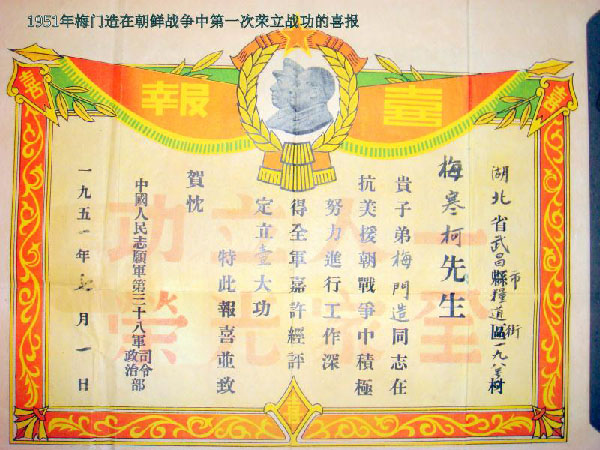 1951年梅门造在朝鲜战争中第一次荣立战功的喜报
喜報
喜
喜
一人立功
全家光榮
湖北省武昌縣市糧道區街一九八村
梅寒柯先生
貴子弟梅門造同志在
抗美援朝戰爭中積極
努力進行工作深
得全軍嘉許經評
定立壹大功
特此報喜並致
賀忱
中國人民志願軍第三十八軍司令政治部
一九五一年月一日